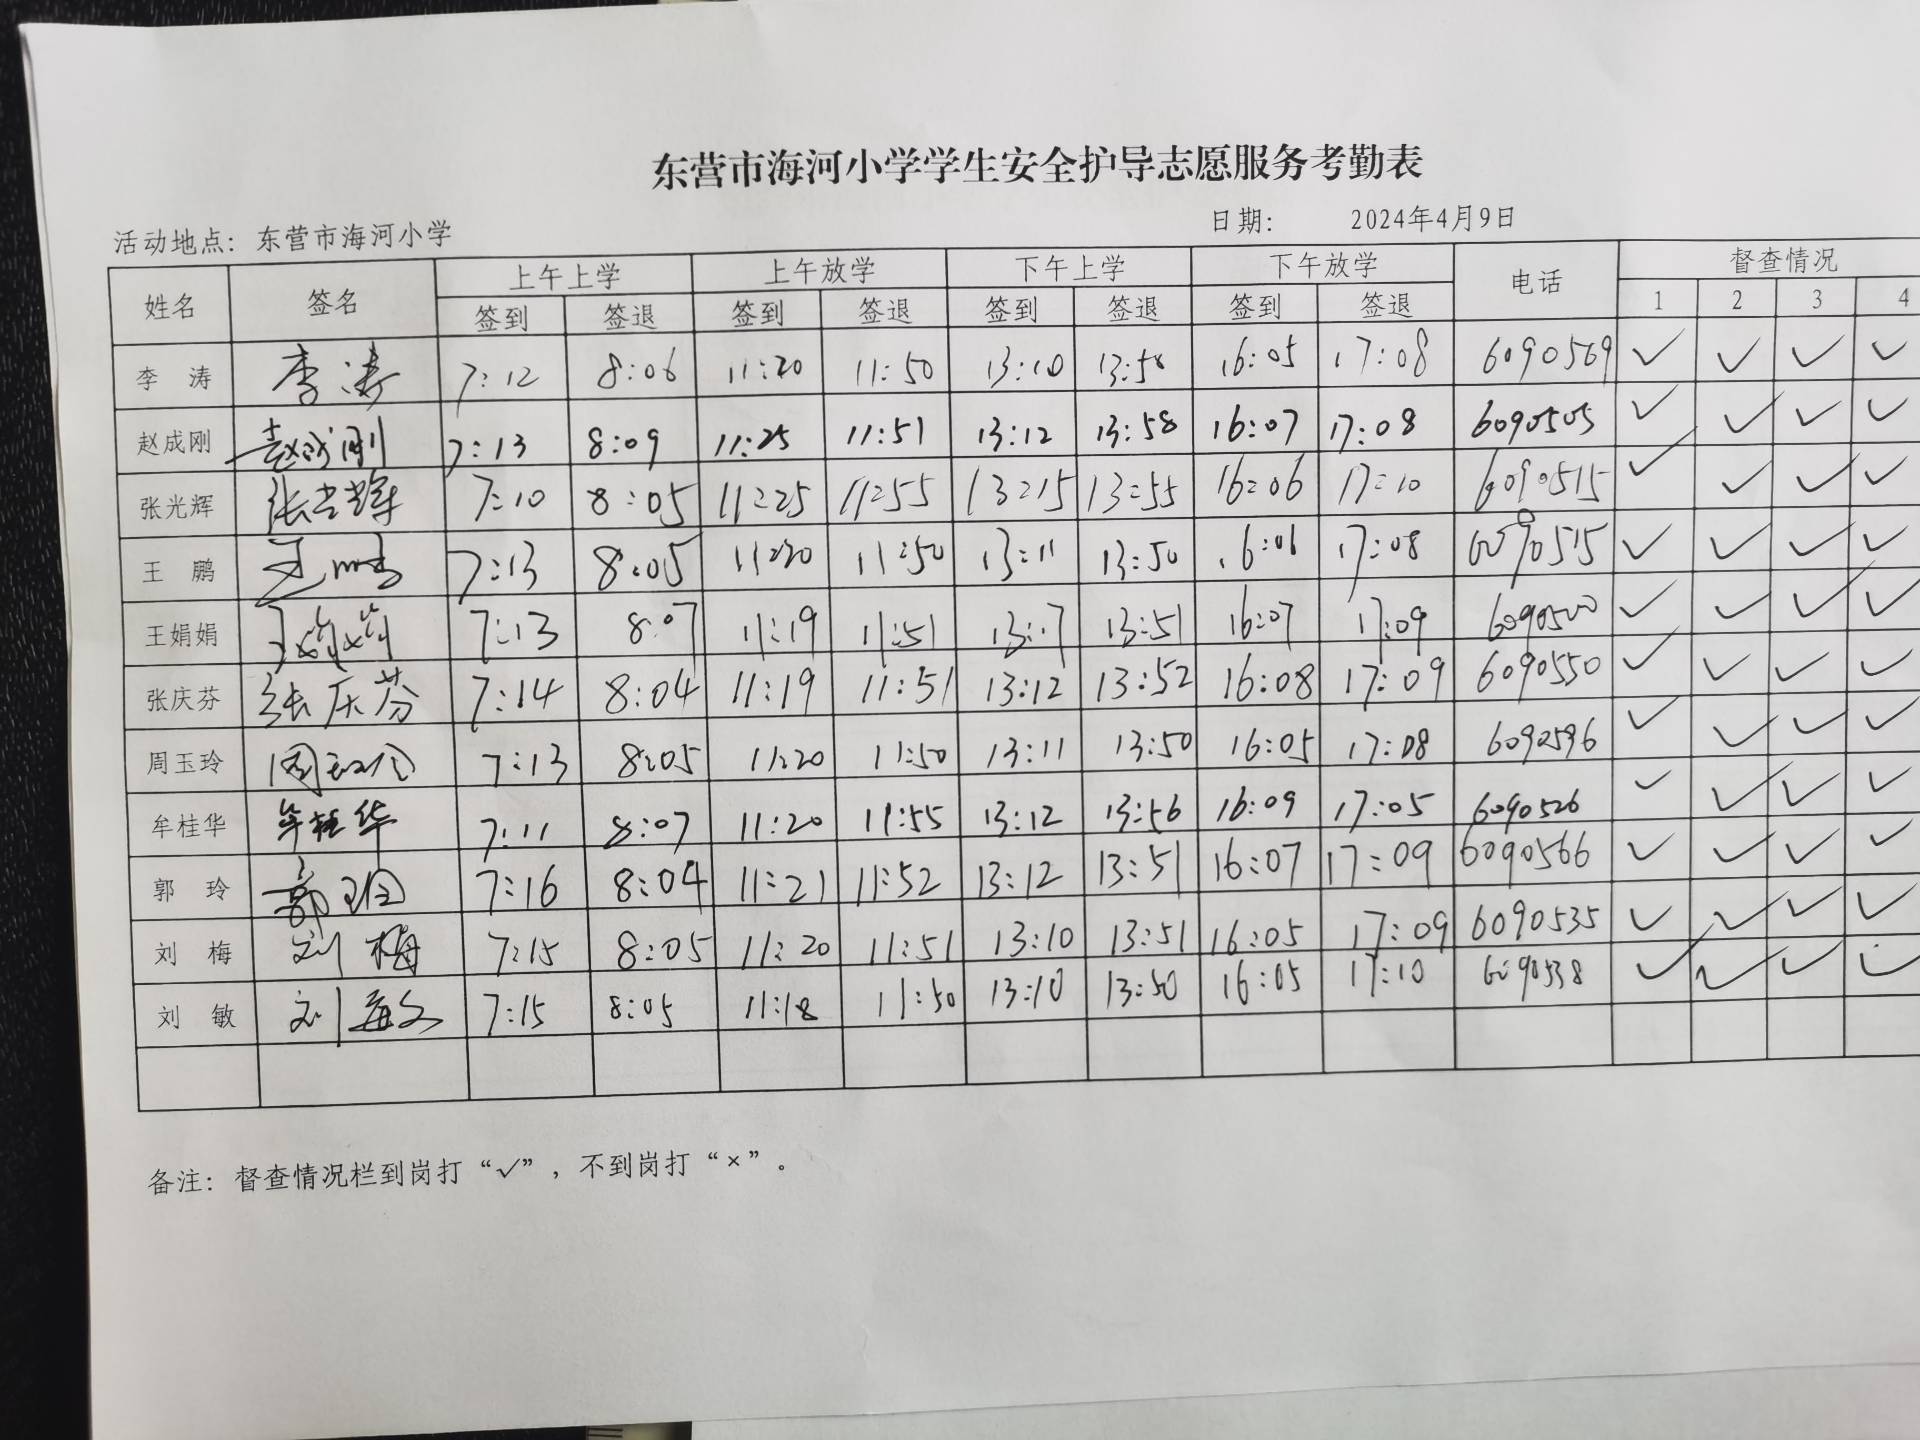 东营市海河小学学生安全护导志愿服务考勤表
活动地点：东营市海河小学 日期： 2024年4月9日
姓名 签名 上午上学 上午放学 下午上学 下午放学 电话 督查情况
签到 签退 签到 签退 签到 签退 签到 签退 1 2 3 4
李 涛 李涛 7:12 8:06 11:20 11:50 13:10 13:58 16:05 17:08 6090569 ✓ ✓ ✓ ✓
赵成刚 赵成刚 7:13 8:09 11:25 11:51 13:12 13:58 16:07 17:08 6090505 ✓ ✓ ✓ ✓
张光辉 张光辉 7:10 8:05 11:25 11:55 13:15 13:55 16:06 17:10 6090515 ✓ ✓ ✓ ✓
王 鹏 王鹏 7:13 8:05 11:20 11:50 13:11 13:50 16:06 17:08 6090515 ✓ ✓ ✓ ✓
王娟娟 王娟娟 7:13 8:07 11:19 11:51 13:17 13:51 16:07 17:09 6090500 ✓ ✓ ✓ ✓
张庆芬 张庆芬 7:14 8:04 11:19 11:51 13:12 13:52 16:08 17:09 6090550 ✓ ✓ ✓ ✓
周玉玲 周玉玲 7:13 8:05 11:20 11:50 13:11 13:50 16:05 17:08 6090596 ✓ ✓ ✓ ✓
牟桂华 牟桂华 7:11 8:07 11:20 11:55 13:12 13:56 16:09 17:05 6090526 ✓ ✓ ✓ ✓
郭 玲 郭玲 7:16 8:04 11:21 11:52 13:12 13:51 16:07 17:09 6090566 ✓ ✓ ✓ ✓
刘 梅 刘梅 7:15 8:05 11:20 11:51 13:10 13:51 16:05 17:09 6090535 ✓ ✓ ✓ ✓
刘 敏 刘敏 7:15 8:05 11:18 11:50 13:10 13:50 16:05 17:10 6090538 ✓ ✓ ✓ ✓
备注：督查情况栏到岗打“✓”，不到岗打“×”。